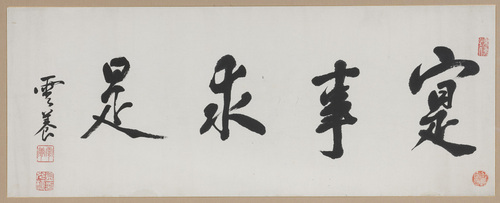 寔事求是
雲養